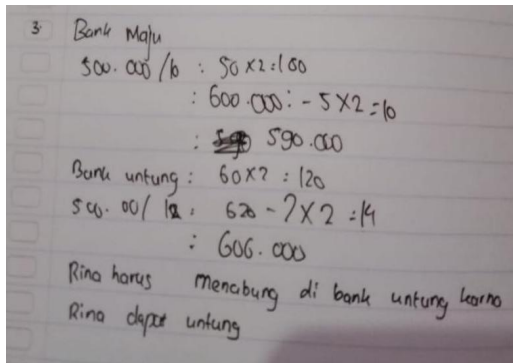 3. Bank Maju
500.000/10 : 50x2=100
: 600.000: - 5x2=10
: 590.000
Bank untung: 60x2 : 120
500.00/12 : 620 - 7x2 =14
: 606.000
Rina harus menabung di bank untung karno
Rina dapat untung